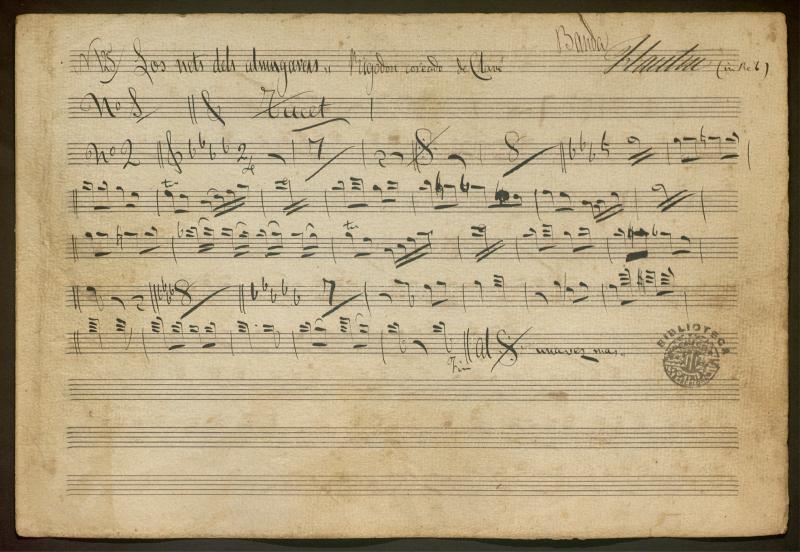 Banda
Nº 25 Los nets dels almugavers,, Rigodon coreado de Clavé Flautin (in Re b)
Nº 1 Tacet
Nº 2 2 7 8
tr
tr
8 7
Fin al 𝄋 una vez mas..
BIBLIOTECA